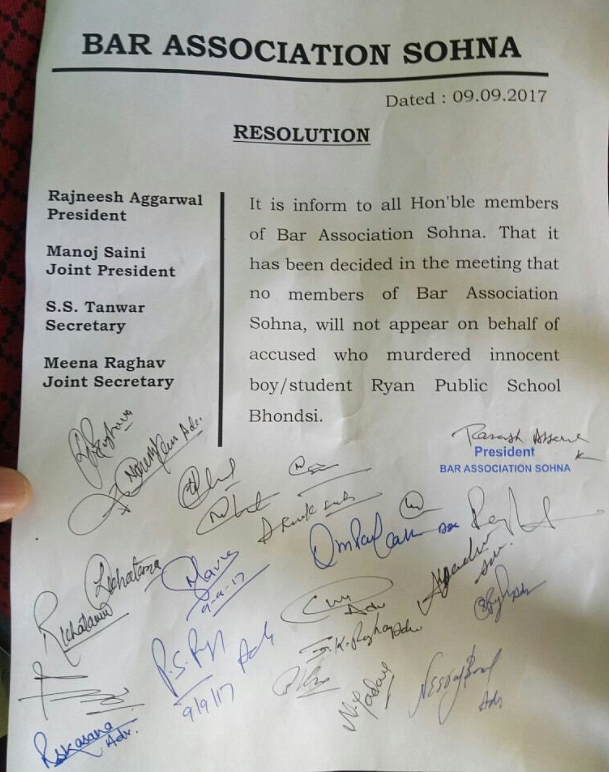 BAR ASSOCIATION SOHNA
Dated : 09.09.2017
RESOLUTION
Rajneesh Aggarwal
President
Manoj Saini
Joint President
S.S. Tanwar
Secretary
Meena Raghav
Joint Secretary
It is inform to all Hon'ble members
of Bar Association Sohna. That it
has been decided in the meeting that
no members of Bar Association
Sohna, will not appear on behalf of
accused who murdered innocent
boy/student Ryan Public School
Bhondsi.
President
BAR ASSOCIATION SOHNA
Adv.
9-9-17
Adv
S.K. Raghav Adv
P.S.
Adv
9/9/17
N. Yadav
Adv
Adv.